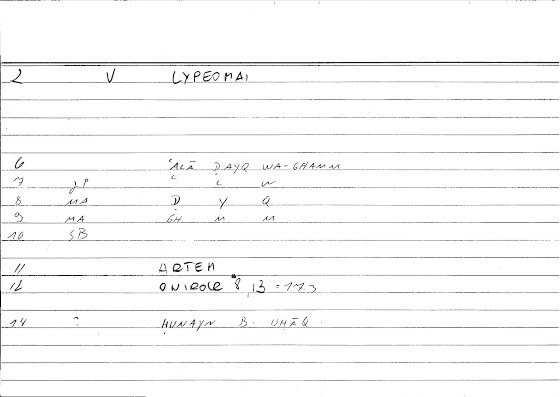 2 V LYPEOMAI
6 ʿALĀ ḌAYQ WA-GHAMM
7 JP ʿ L W
8 MA Ḍ Y Q
9 MA GH M M
10 SB
11 ARTEM
12 ONIROCR 8, 13 = 173
14 ? ḤUNAYN B.